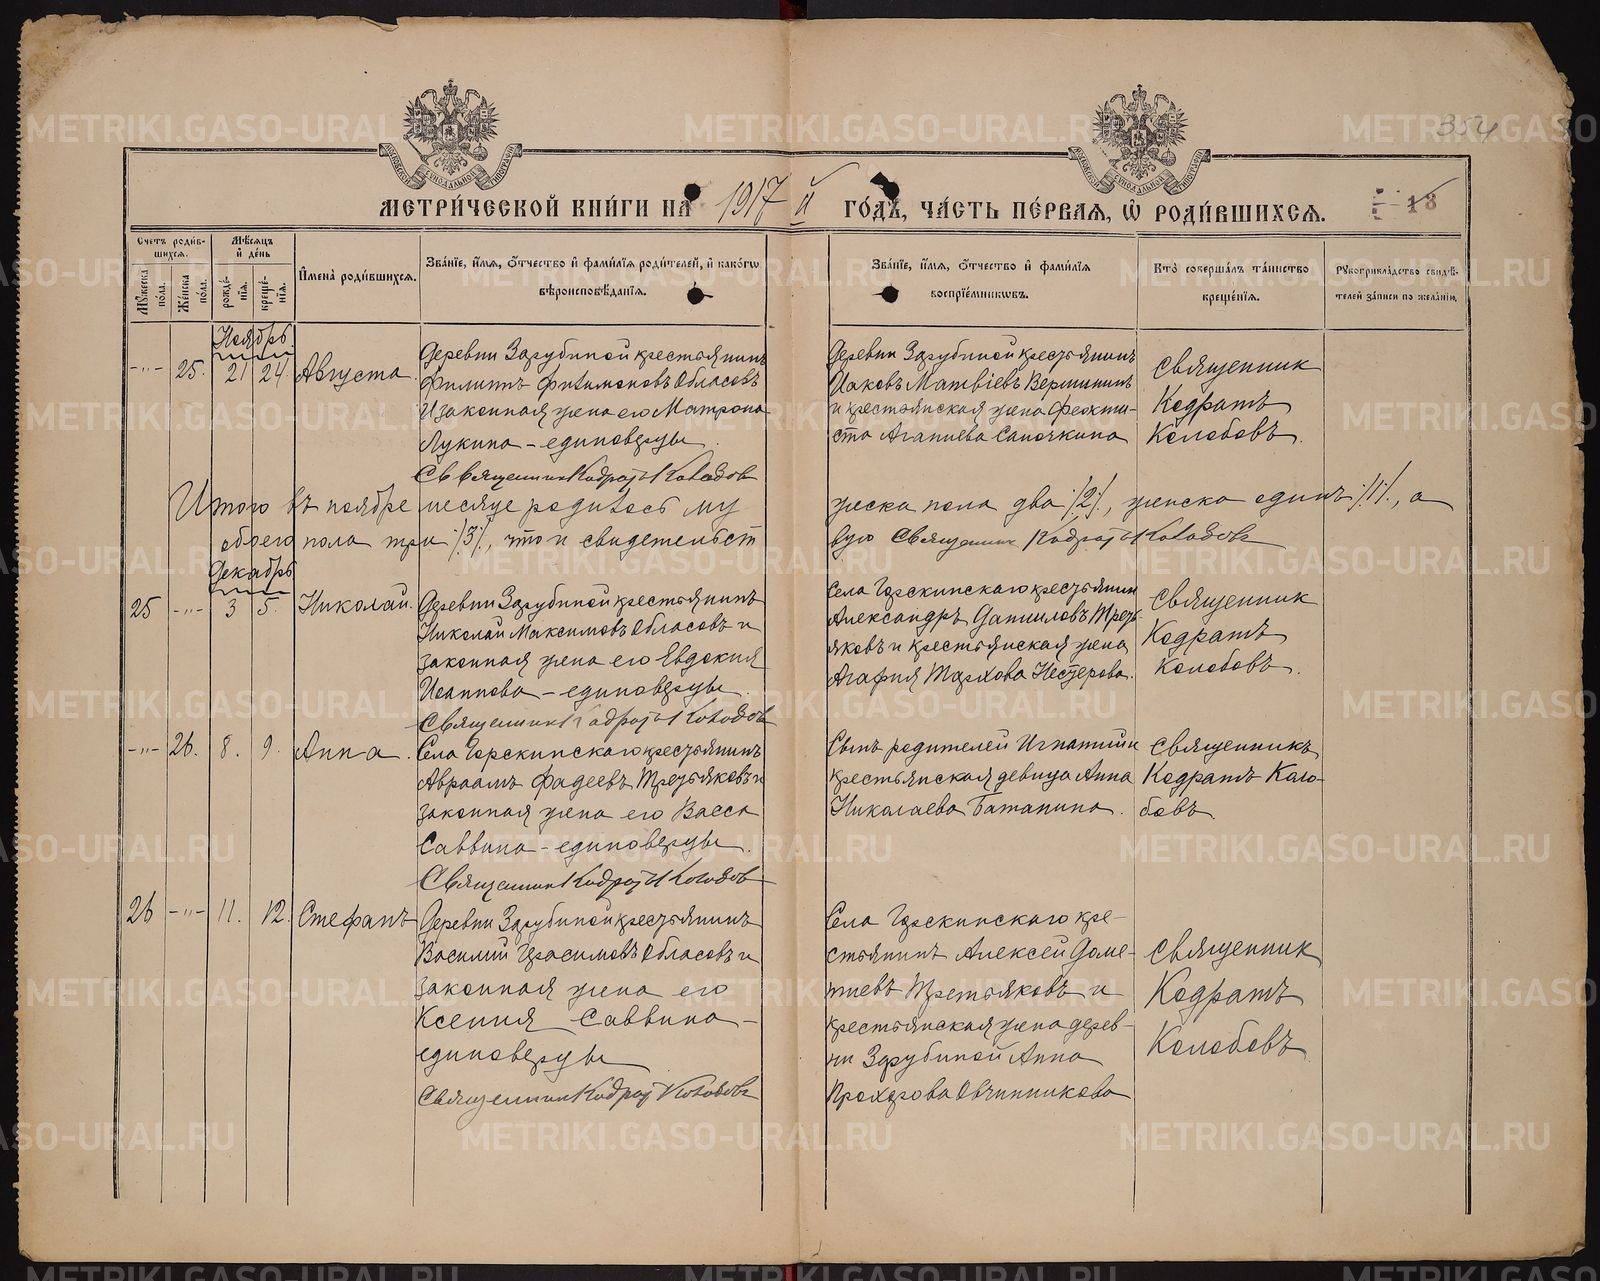 354
МЕТРИ́ЧЕСКОЙ КНИ́ГИ НА 1917 й ГО́ДЪ, ЧА́СТЬ ПЕ́РВАЯ, Ѡ РОДИ́ВШИХСЯ.
18
Счетъ роди́вшихся.
Мѣсяцъ и де́нь
Мꙋжеска по́ла.
Же́нска по́ла.
рожде́нїя.
креще́нїя.
И҆мена̀ роди́вшихся.
Зва́нїе, и҆́мя, ѻ҆́тчество и҆ фами́лїя роди́телей, и҆ како́гѡ
вѣроисповѣ́данїя.
Зва́нїе, и҆́мя, ѻ҆́тчество и҆ фами́лїя
воспрїе́мникѡвъ.
Кто̀ соверша́лъ та́инство
креще́нїя.
Рꙋкоприкла́дство свидѣ́-
телей за́писи по жела́нїю.
Ноябрь.
-"- 25. 21 24. Августа.
Деревни Зарубиной крестьянинъ
Филиппъ Филимоновъ Обласовъ
и законная жена его Матрона
Лукина - единоверцы.
Священник Кодрат Колобов
Деревни Зарубиной крестьянинъ
Иаковъ Матвіевъ Вершининъ
и крестьянская жена Феокти-
ста Агапиева Сапожкина
Священник
Кодратъ
Колобовъ.
Итого въ ноябре месяце родилось му
жеска пола два /2/, женска один /1/, а
обоего пола три /3/, что и свидетельст
вую Священник Кодратъ Колобовъ
Декабрь
25 -"- 3 5. Николай.
Деревни Зарубиной крестьянинъ
Николай Максимовъ Обласовъ и
законная жена его Евдокия
Иоаннова - единоверцы.
Священник Кодратъ Колобов
Села
Александръ Данииловъ Треть-
яковъ и крестьянская жена
Агафия Тархова Нестерова.
Священник
Кодратъ
Колобовъ.
-"- 26. 8. 9. Анна.
Села крестьянинъ
Авраамъ Фадеевъ Третьяковъ и
законная жена его Васса
Саввина - единоверцы.
Священник Кодрат Колобов
Сынъ родителей Игнатий и
крестьянская девица Анна
Николаева Батанина.
Священникъ
Кодратъ Коло-
бовъ.
26 -"- 11. 12. Стефанъ
Деревни Зарубиной крестьянинъ
Василий Герасимовъ Обласовъ и
законная жена его
Ксения Саввина -
единоверцы
Священник Кодрат Колобовъ
Села кре-
стьянинъ Алексей Доме-
тиевъ Третьяковъ и
крестьянская жена дерев-
ни Зарубиной Анна
Прохорова Овчинникова
Священник
Кодратъ
Колобовъ
METRIKI.GASO-URAL.RU